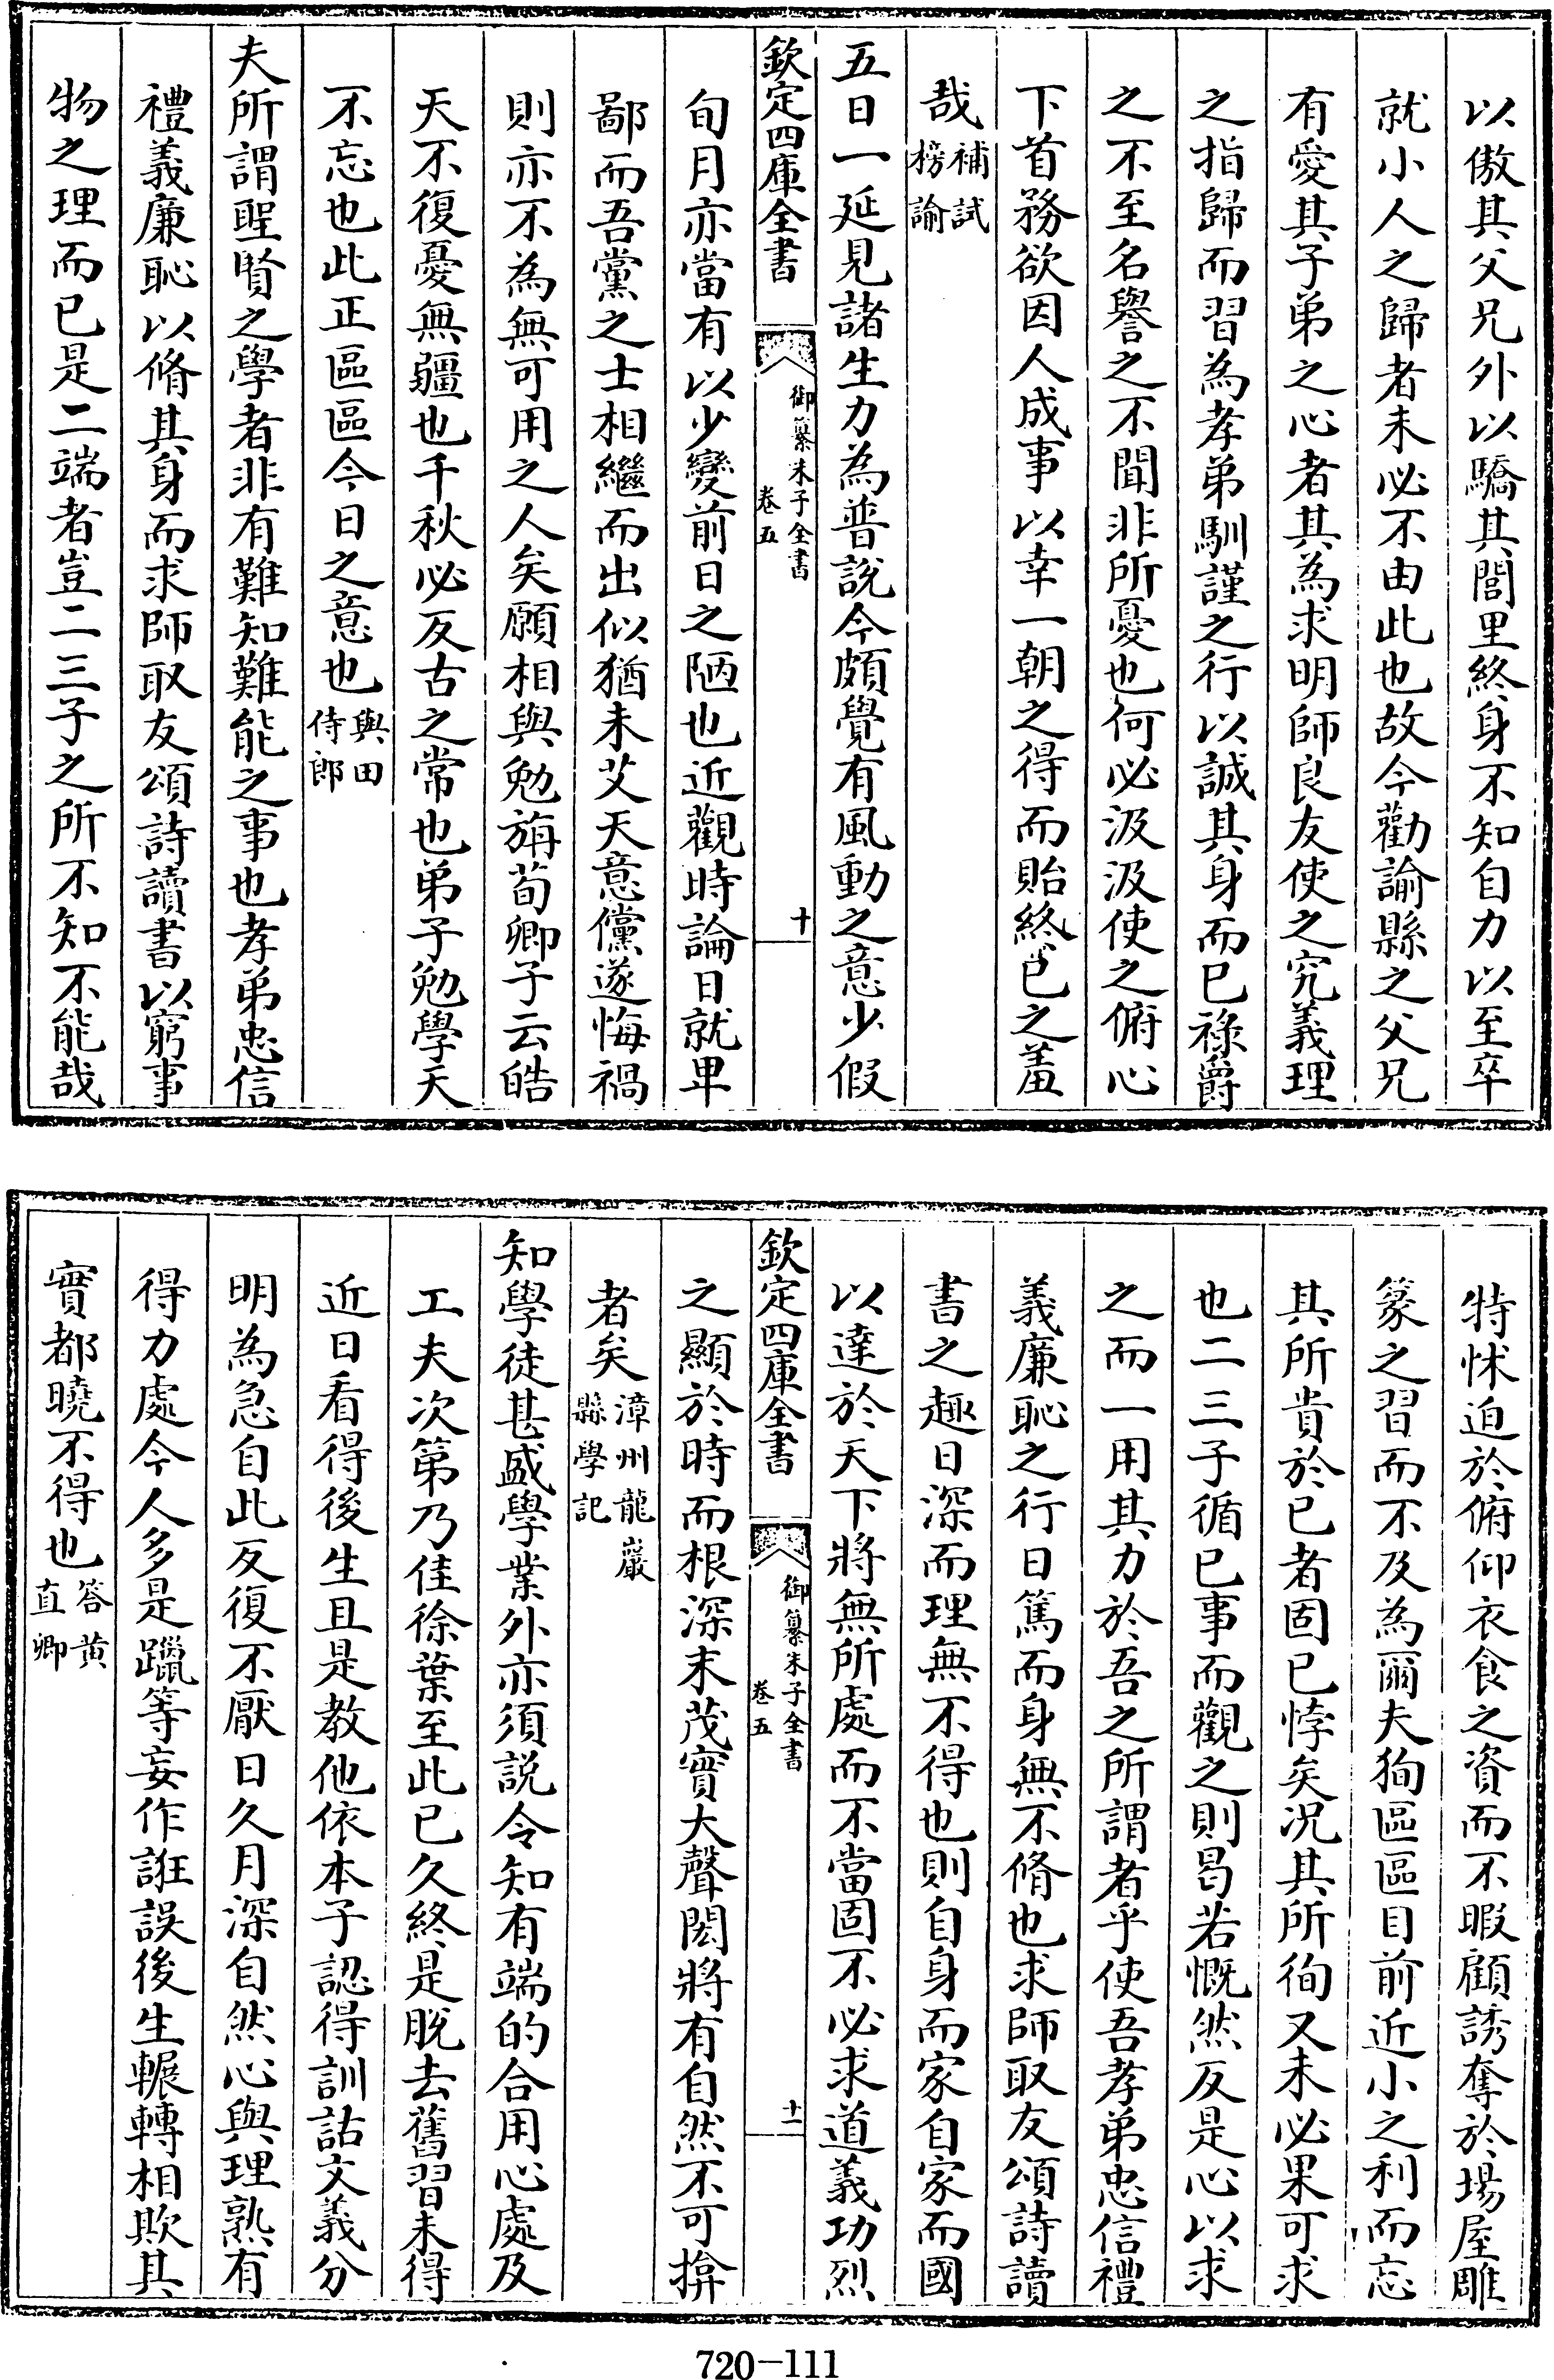 以傲其父兄外以驕其閭里終身不知自力以至卒
就小人之歸者未必不由此也故今勸諭縣之父兄
有愛其子弟之心者其為求明師良友使之究義理
之指歸而習為孝弟馴謹之行以誠其身而已祿爵
之不至名譽之不聞非所憂也何必汲汲使之俯心
下首務欲因人成事以幸一朝之得而貽終已之羞
哉補試榜諭
五日一延見諸生力為普說今頗覺有風動之意少假
欽定四庫全書
御纂朱子全書
卷五
十
旬月亦當有以少變前日之陋也近觀時論日就卑
鄙而吾黨之士相繼而出似猶未艾天意儻遂悔禍
則亦不為無可用之人矣願相與勉旃荀卿子云皓
天不復憂無疆也千秋必反古之常也弟子勉學天
不忘也此正區區今日之意也與田侍郎
夫所謂聖賢之學者非有難知難能之事也孝弟忠信
禮義廉恥以脩其身而求師取友頌詩讀書以窮事
物之理而已是二端者豈二三子之所不知不能哉
特怵迫於俯仰衣食之資而不暇顧誘奪於場屋雕
篆之習而不及為爾夫狥區區目前近小之利而忘
其所貴於已者固已悖矣况其所徇又未必果可求
也二三子循已事而觀之則曷若慨然反是心以求
之而一用其力於吾之所謂者乎使吾孝弟忠信禮
義廉恥之行日篤而身無不脩也求師取友頌詩讀
書之趣日深而理無不得也則自身而家自家而國
以達於天下將無所處而不當固不必求道義功烈
欽定四庫全書
御纂朱子全書
卷五
十一
之顯於時而根深末茂實大聲閎將有自然不可揜
者矣漳州龍巖縣學記
知學徒甚盛學業外亦須説令知有端的合用心處及
工夫次第乃佳徐葉至此已久終是脫去舊習未得
近日看得後生且是教他依本子認得訓詁文義分
明為急自此反復不厭日久月深自然心與理熟有
得力處今人多是躐等妄作誑誤後生輾轉相欺其
實都曉不得也答黄直卿
720-111